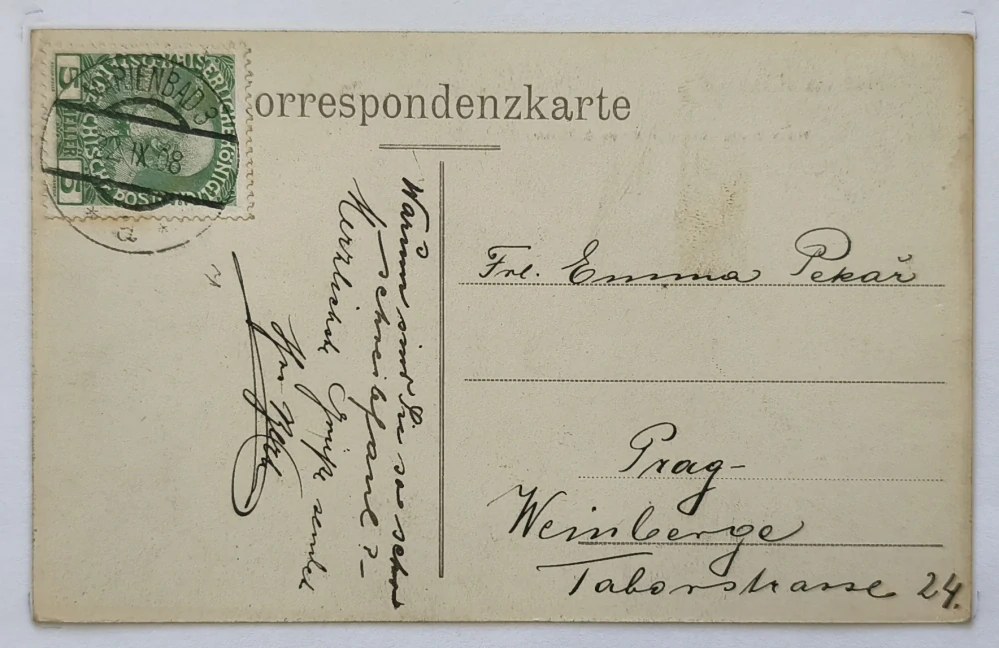 orrespondenzkarte
MARIENBAD 3
IX 08
5 HELLER 5
Warum sind Sie so schr
schreibfaul? –
Herzlichste Grüße sendet
Ihr
Frl. Emma Pekař
Prag-
Weinberge
Taborstrasse 24.